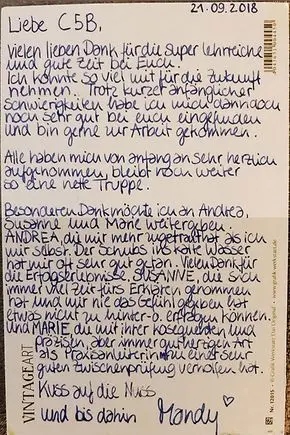 21.09.2018
Liebe C5B,
vielen lieben Dank für die super lehrreiche
und gute Zeit bei Euch.
Ich konnte so viel mit für die Zukunft
nehmen. Trotz kurzer anfänglicher
Schwierigkeiten habe ich mich dann doch
noch sehr gut bei euch eingefunden
und bin gerne zur Arbeit gekommen.
Alle haben mich von anfang an sehr herzlich
aufgenommen, bleibt noch weiter
so eine nette Truppe.
Besonderen Dank möchte ich an Andrea,
Susanne und Marie weitergeben.
ANDREA, die mir mehr zugetraut hat als ich
mir selbst. Der Schubs ins kalte Wasser
hat mir oft sehr gut getan. Vielen Dank für
die Erfolgserlebnisse, SUSANNE, die sich
immer viel Zeit fürs Erklären genommen
hat und mir nie das Gefühl gegeben hat
etwas nicht zu hinter- o. erfragen können.
und MARIE, die mit ihrer kosegurten und
präzisen, aber immer gutherzigen Art
als Praxisanleiterin zu einer sehr
guten Zwischenprüfung verholfen hat.
Kuss auf die Nuss
und bis dahin Mandy
VINTAGEART
Nr. 12015 · © Grafik Werkstatt "Das Original" · www.grafik-werkstatt.de